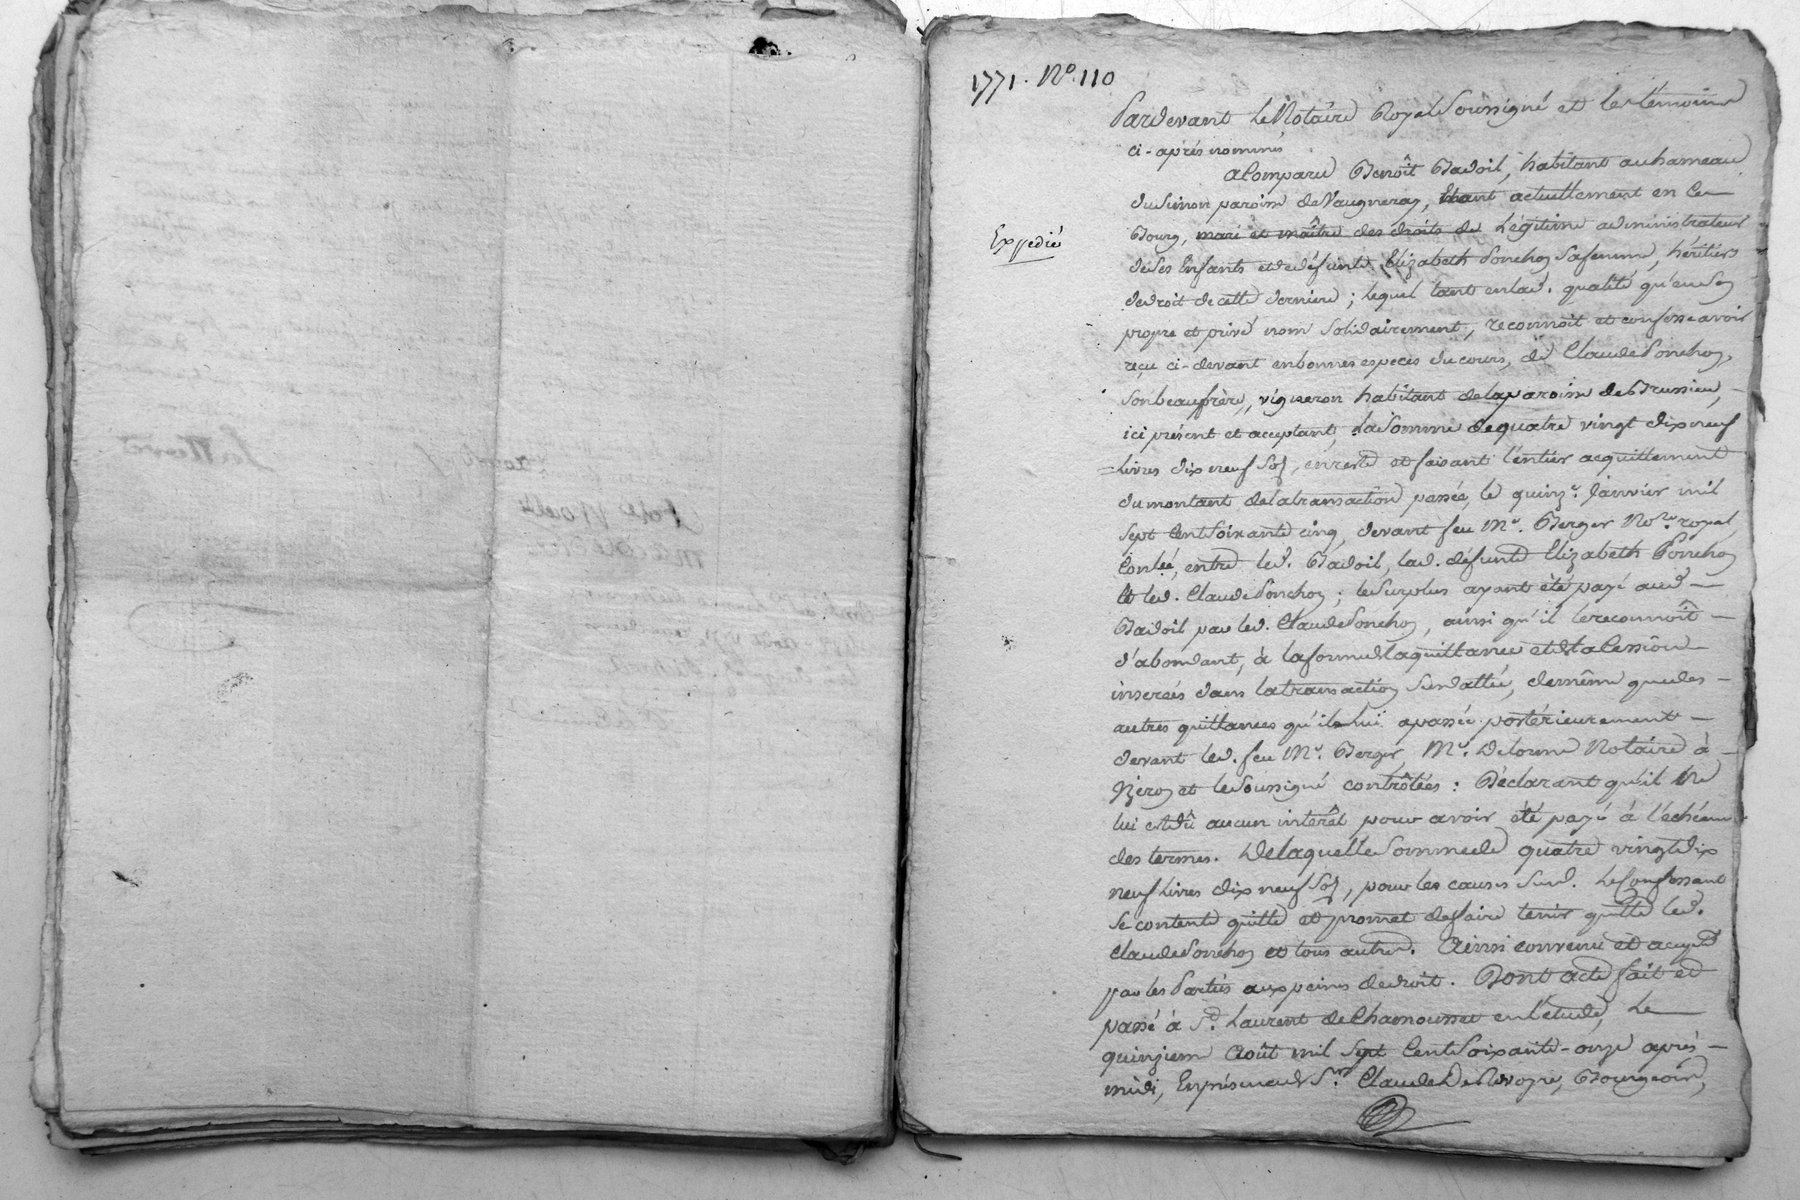 1771. N.º 110
Pardevant le Notaire Royal Soussigné et les témoins
ci-après nommés
a Comparu Benoît Badoil, habitant au hameau
du Simon paroisse de Vaugneray, étant actuellement en ce
Expedié
Bourg, mari et maître des droits de Légitime administrateur
de ses Enfants et de défunte Elizabeth Ponchon sa femme, héritiers
de droit de cette derniere ; lequel tant en lad. qualité qu'en son
propre et privé nom solidairement, reconnoit et confesse avoir
reçu ci-devant en bonnes especes du cours, de Claude Ponchon,
son beaufrère, vigneron habitant de la paroisse de Brussieu,
ici présent et acceptant, la Somme de quatre vingt dix neuf
livres dix neuf Sols, en reste et faisant l'entier acquittement
du montant de la transaction passée, le quinz.e Janvier mil
Sept Cent Soixante cinq, devant feu M.e Berger No.re royal
Conlée, entre led. Badoil, lad. défunte Elizabeth Ponchon
et led. Claude Ponchon ; le surplus ayant été payé aud.
Badoil par led. Claude Ponchon, ainsi qu'il le reconnoît
d'abondant, à la forme de la quittance et de la Cession
inserées dans la transaction Susdattée, de même que des
autres quittances qu'il lui a passée postérieurement
devant led. feu M.e Berger, M.e Delorme Notaire à
Yzeron et le Soussigné contrôlées : Déclarant qu'il ne
lui est dû aucun intérêt pour avoir été payé à l'échéance
des termes. De laquelle Somme de quatre vingt dix
neuf Livres dix neuf Sols, pour les causes Susd. le Confessant
se contente quitte et promet de faire tenir quitte led.
Claude Ponchon et tous autres. Ainsi convenu et accepté
par les Parties aux peines de droit. Dont acte fait et
passé à S.t Laurent de Chamousset en l'étude, Le
quinzieme Août mil Sept Cent Soixante-onze après-
midi, En présence de S.r Claude Bourgeois,